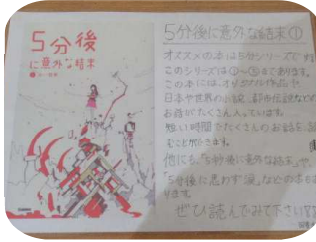 5分後
に意外な結末
5分後に意外な結末①
オススメの本は5分シリーズです
このシリーズは①~ まであります。
この本には、オリジナル作品や
日本や世界の 都市伝説などの
お話がたくさん入っています。
短い時間でたくさんのお話を
むことができます。
他にも、「5分後に意外な結末」で、
「5分後に思わず涙」などの本もあ
ります。
ぜひ読んでみて下さい